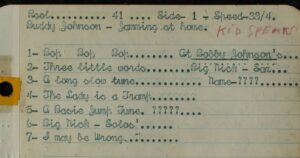 Reel........ 41 .... Side- 1 - Speed-33/4.
Buddy Johnson - Jamming at home.
KID SPEARS
1- Bop Bop Bop ..... At Bobby Johnson's.
2- Three little words........Big Nick - Sax...
3- A long slow tune......... Name-????.....
4- The Lady is a Tramp..........
5- A Basie Jump Tune. ?????....
6- Big Nick - Solos'..........
7- I may be Wrong.........